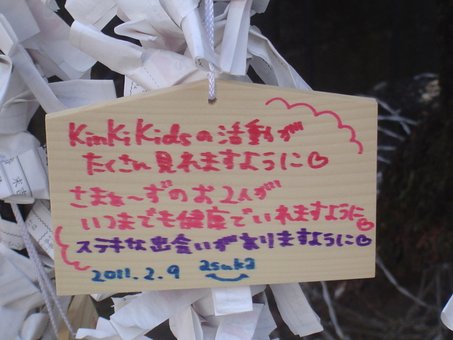 KinKi Kidsの活動が
たくさん見れますように♡
さまぁ〜ずのお2人が
いつまでも健康でいれますように♡
ステキな出会いがありますように♡
2011.2.9 asuka